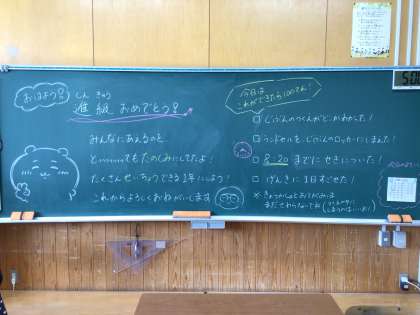 おはよう!!
しん きゅう
進 級 おめでとう!!
みんなにあえるのを
と〜〜〜てもたのしみにしてたよ!
たくさんせいちょうできる1年にしよう!
これからよろしくおねがいします
今日は
これができたら100てん!
□ じぶんのつくえがどこかわかった!
□ ランドセルを じぶんのロッカーにしまえた!
□ 8:20 までに せきについた!
□ げんきに 1日すごせた!